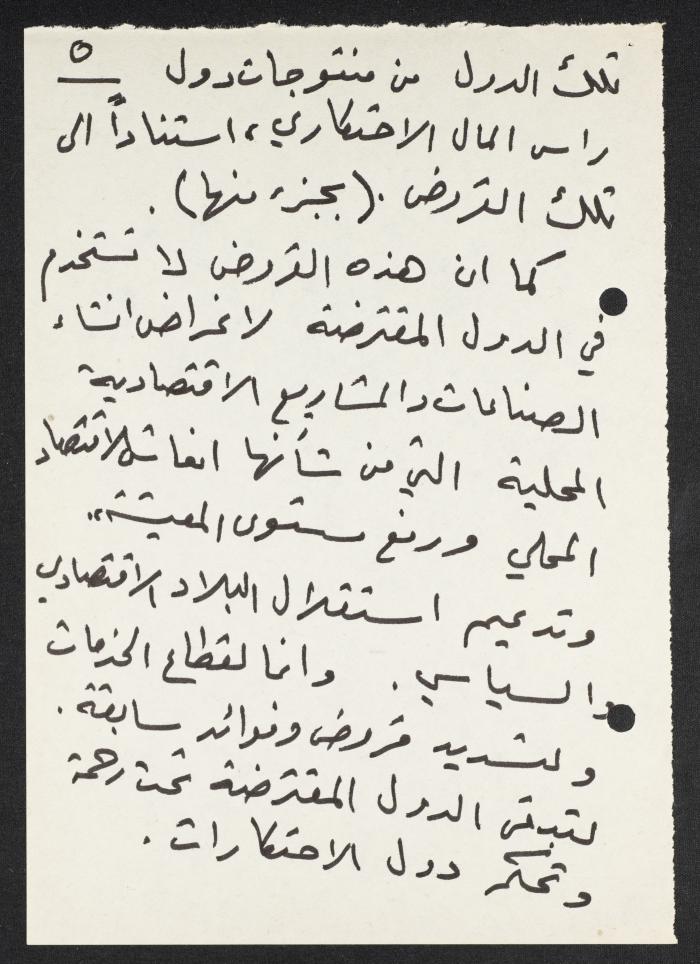 ٥
تلك الدول من منتوجات دول
راس المال الاحتكاري، استناداً الى
تلك القروض. (بجزء منها).
كما ان هذه القروض لا تستخدم
في الدول المقترضة لاغراض انشاء
الصناعات والمشاريع الاقتصادية
المحلية التي من شأنها انعاش الاقتصاد
المحلي ورفع مستوى المعيشة،
وتدعيم استقلال البلاد الاقتصادي
والسياسي. وانما لقطاع الخدمات
ولتسديد قروض وفوائد سابقة.
لتبقى الدول المقترضة تحت رحمة
وتحكم دول الاحتكارات.